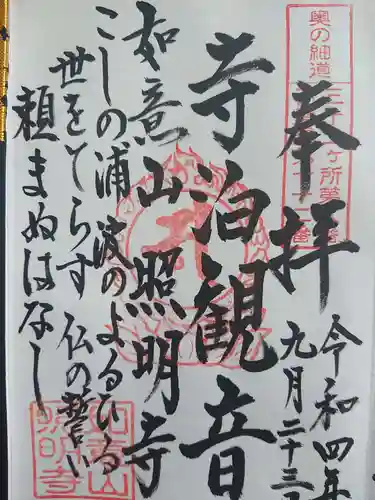 奥の細道
ヶ所第
番
奉拝
令和四年
九月二十三
寺泊観音
如意山照明寺
こしの浦 波のよるひる
世をてらす 仏の誓い
頼まぬはなし
如意山
照明寺